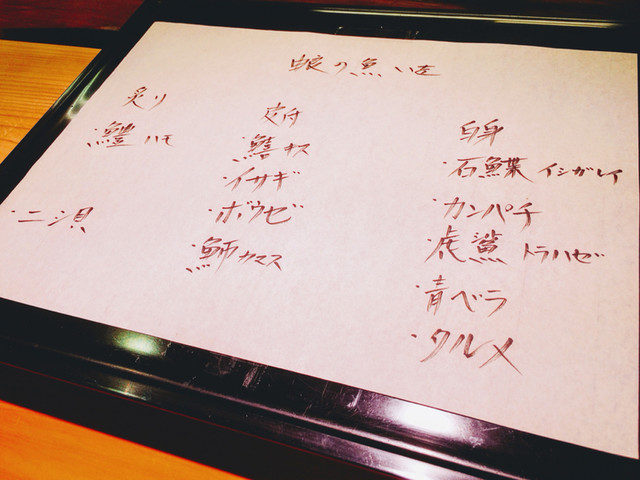 炙り
・鱧 ハモ
・ニシ貝
皮付
・鱚 キス
・イサギ
・ボウゼ
・魳 カマス
白身
・石鰈 イシガレイ
・カンパチ
・虎鯊 トラハゼ
・青ベラ
・タルメ